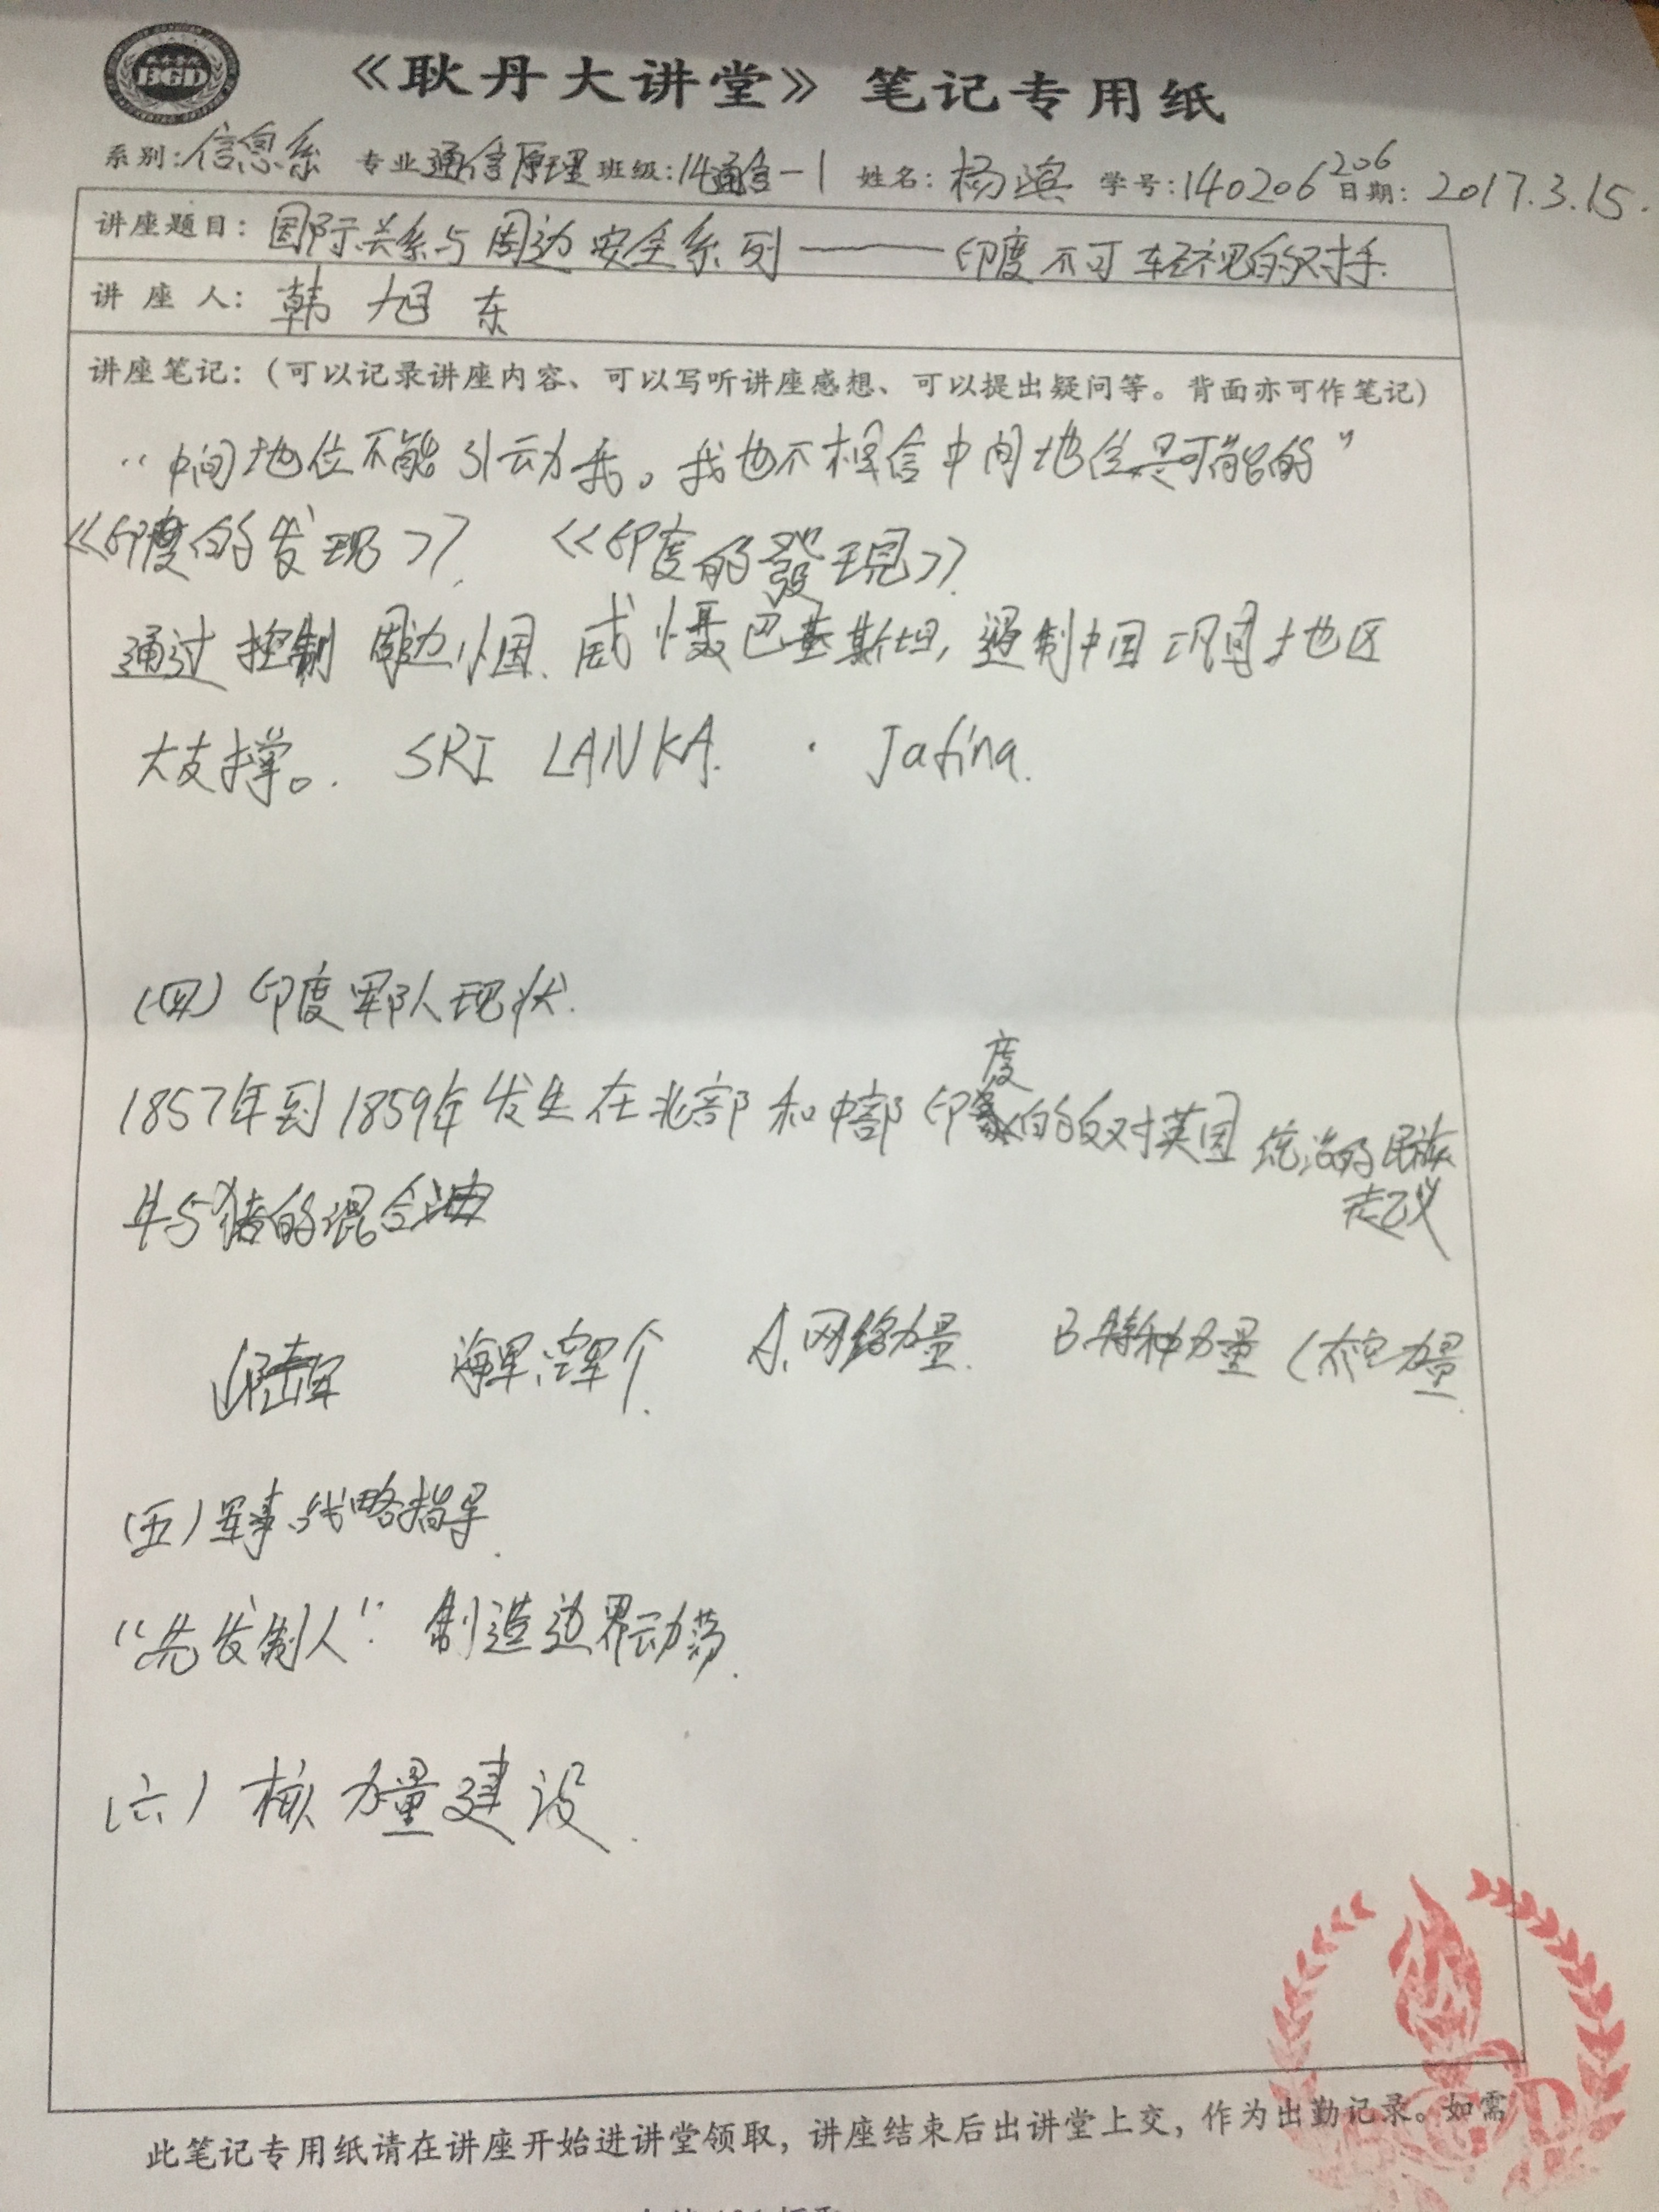 BGD
《耿丹大讲堂》笔记专用纸
系别:信息系 专业 通信原理 班级:14通信-1 姓名:杨滨 学号:140206206 日期:2017.3.15.
讲座题目:国际关系与周边安全系列——印度不可轻视的对手.
讲座人:韩旭东
讲座笔记:(可以记录讲座内容、可以写听讲座感想、可以提出疑问等。背面亦可作笔记)
“中间地位不能引动我。我也不相信中间地位是可能的”
《印度的发现》. 《印度的發現》.
通过控制周边小国、威慑巴基斯坦,遏制中国 巩固 地区
大支撑。. SRI LANKA. · Jafina.
(四)印度军队现状.
1857年到1859年发生在北部和中部印度的反对英国统治的民族
起义
牛与猪的混合油
陆军 海军、空军个. A.网络力量. B特种力量(太空力量.
(五)军事战略指导.
“先发制人”. 制造边界动荡.
(六)核力量建设.
此笔记专用纸请在讲座开始进讲堂领取,讲座结束后出讲堂上交,作为出勤记录。如需